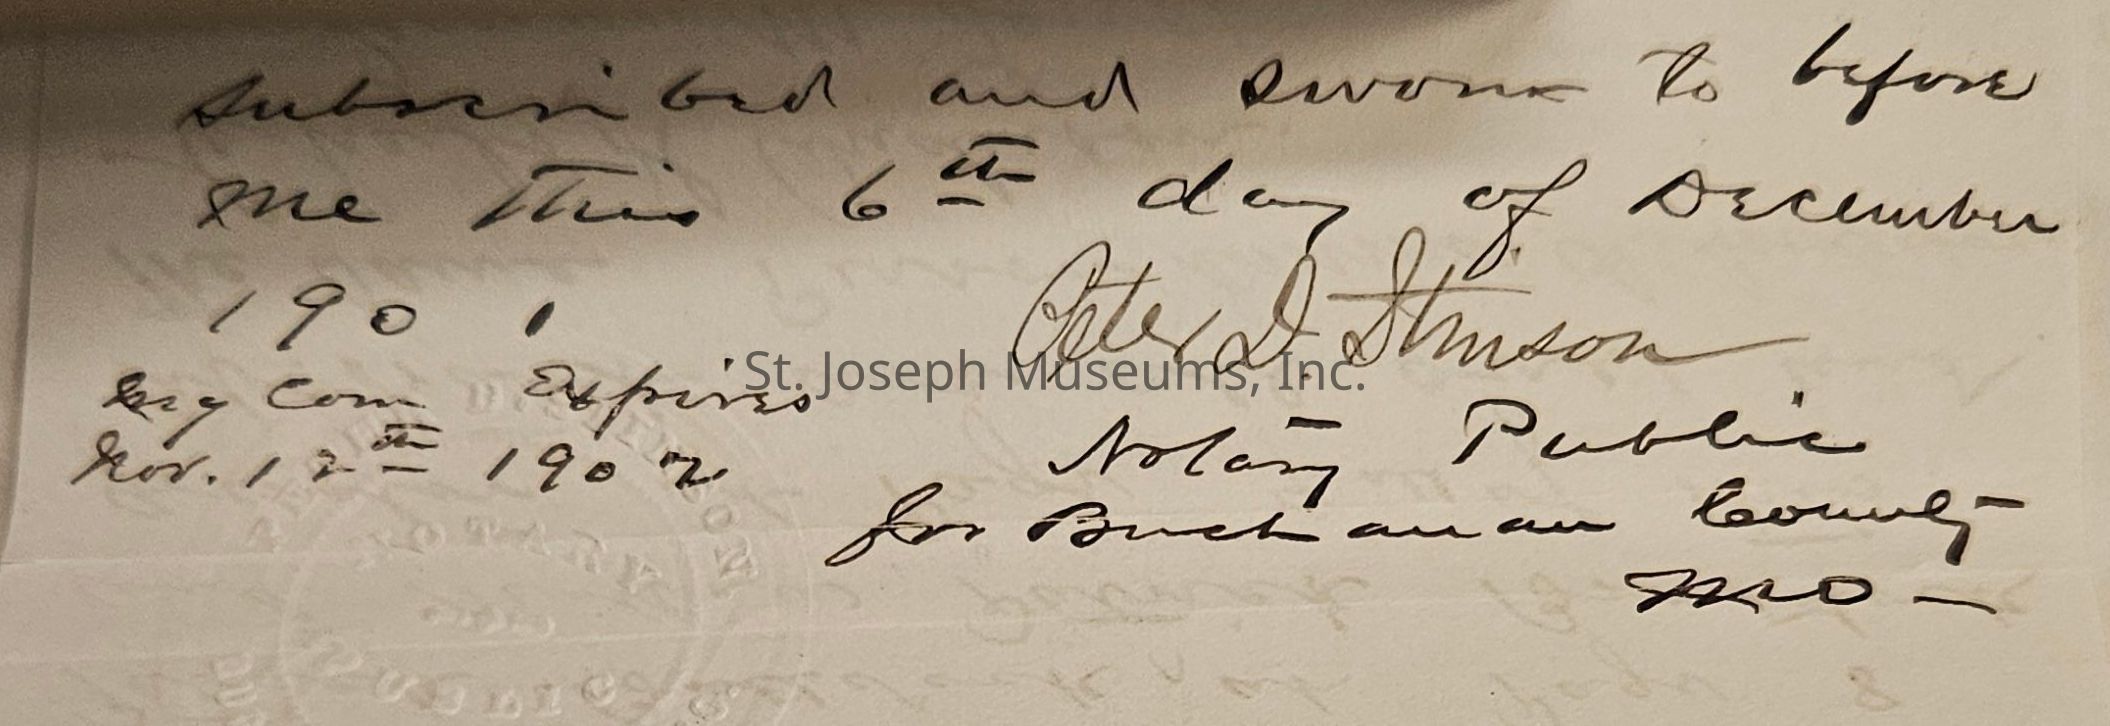 subscribed and sworn to before
me this 6th day of December
1901
Peter D. Stinson
My Com Expires
St. Joseph Museums, Inc.
Nov. 12th 1902
Notary Public
for Buchanan County
MO —